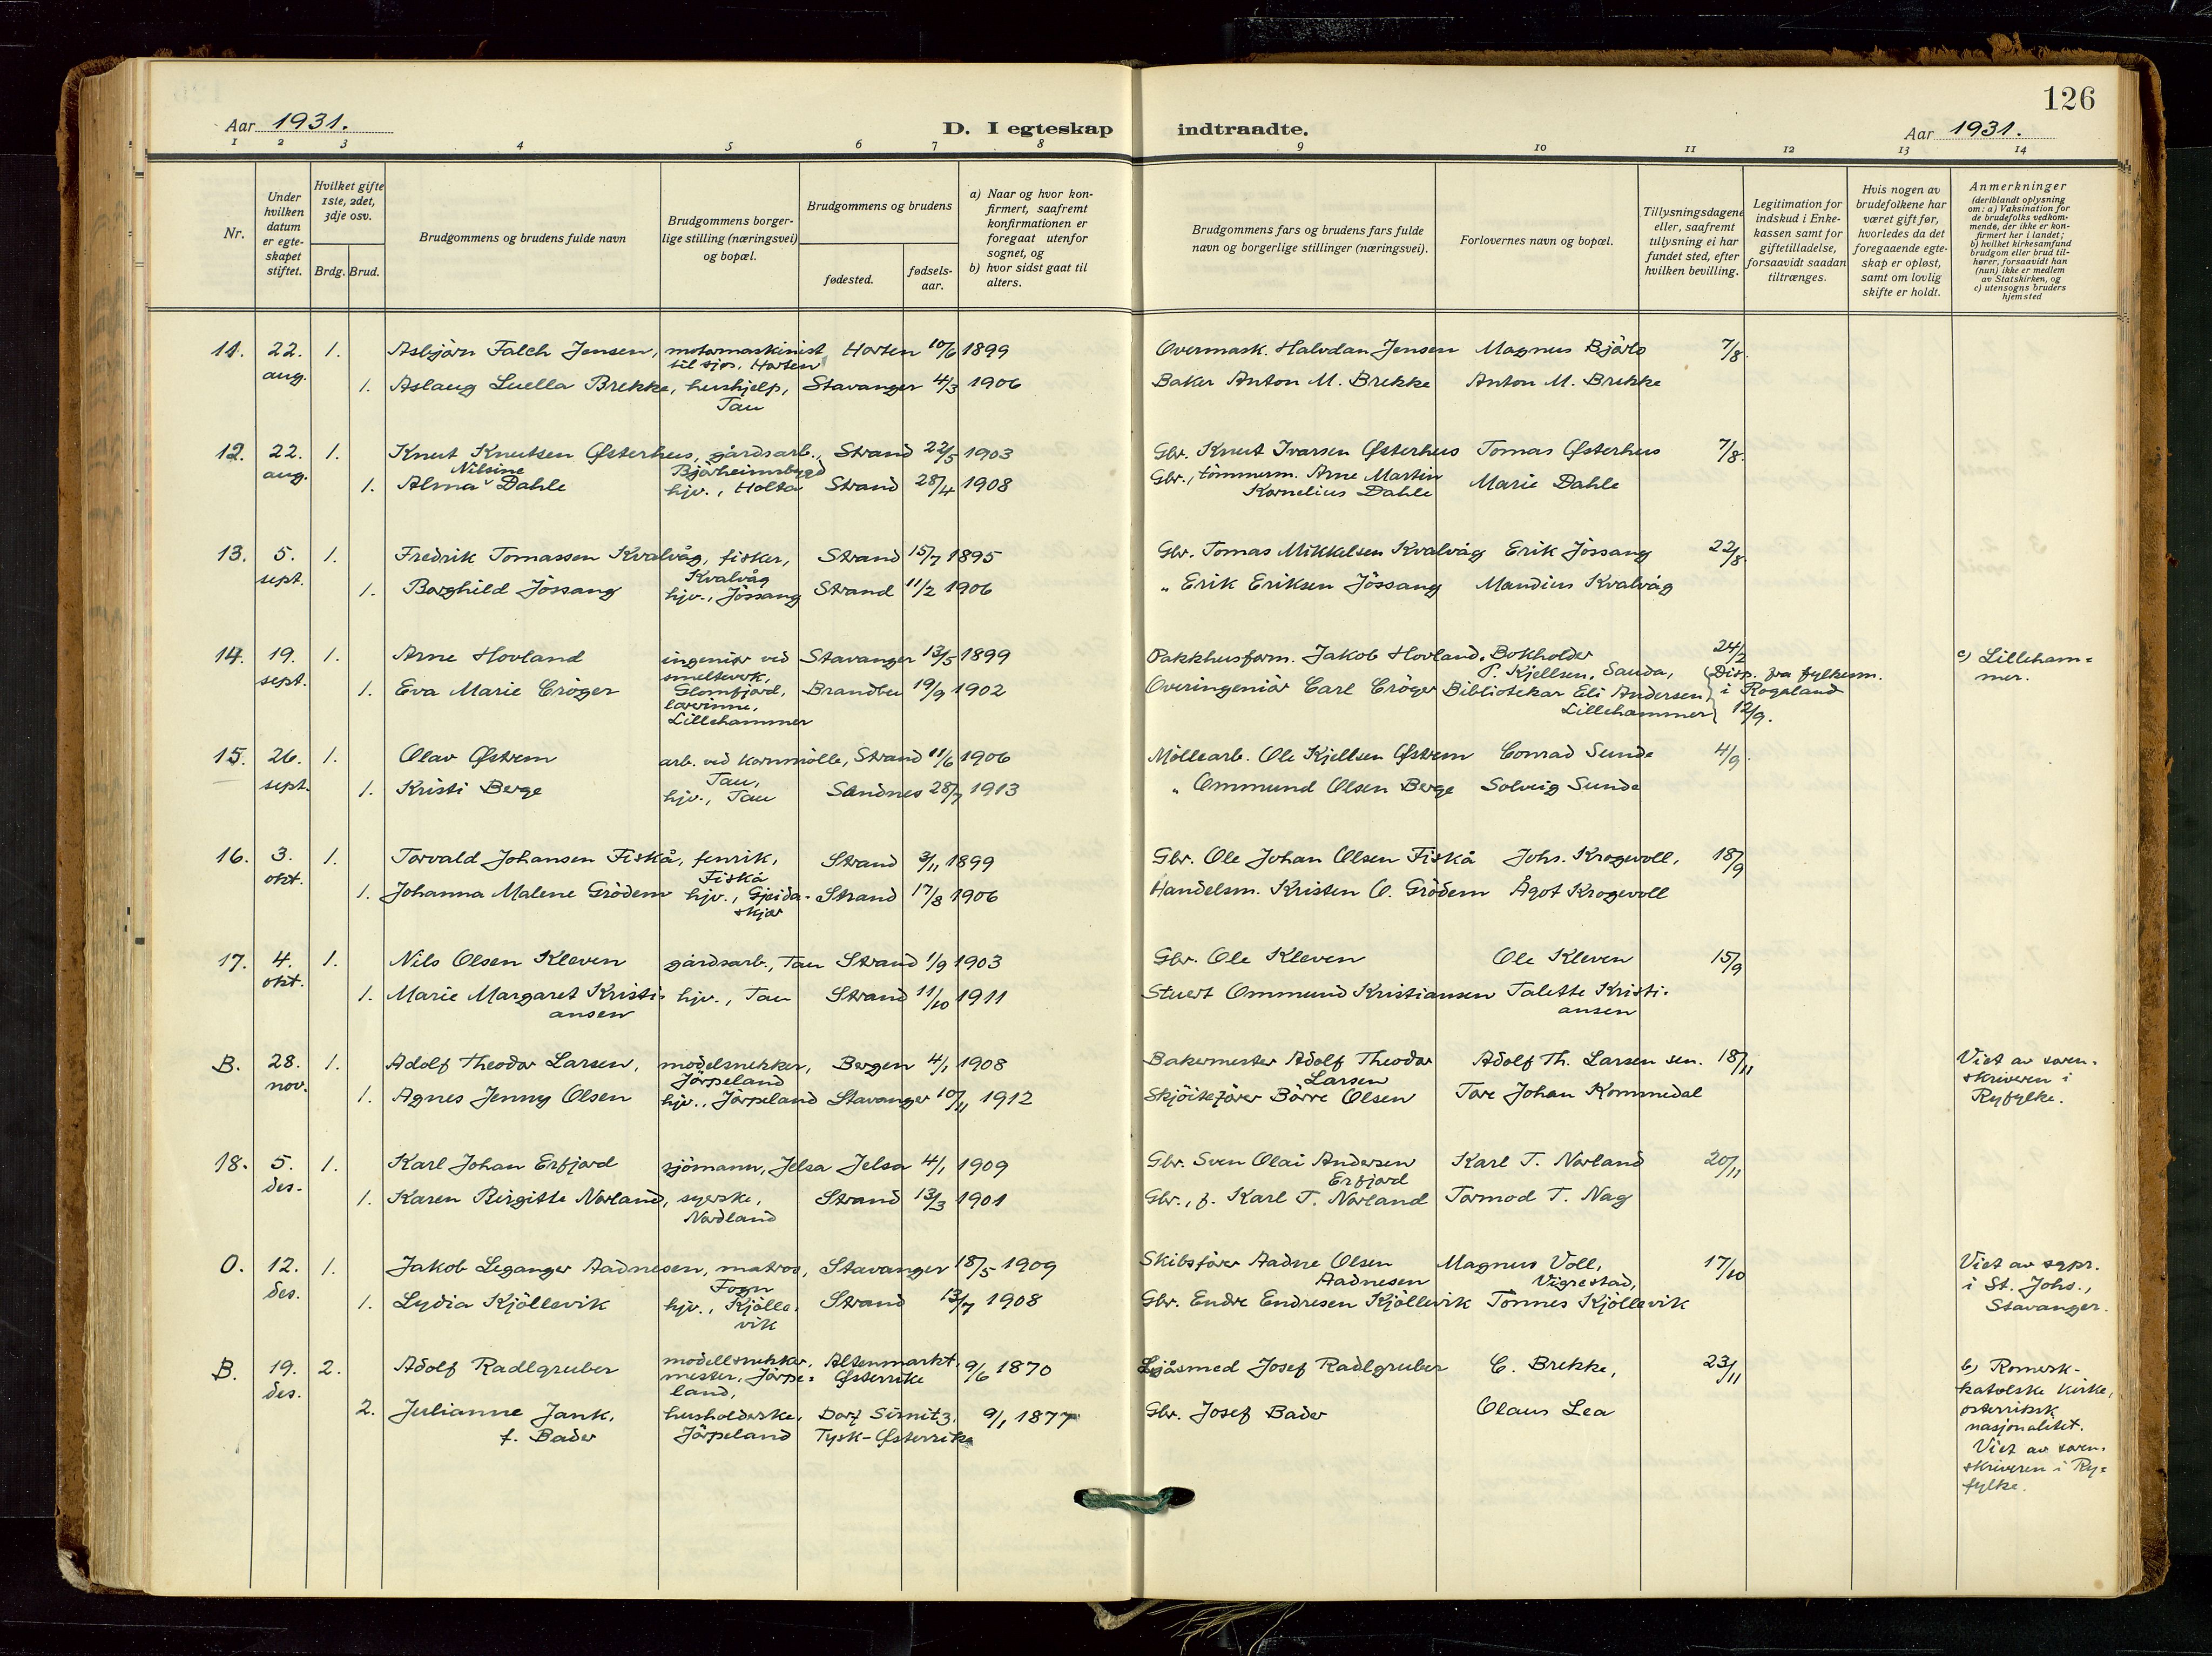 126
Aar 1931.
D. I egteskap indtraadte.
Aar 1931.
1 2 3 4 5 6 7 8 9 10 11 12 13 14
Nr.
Under hvilken datum er egteskapet stiftet.
Hvilket gifte 1ste, 2det, 3dje osv.
Brdg. Brud.
Brudgommens og brudens fulde navn
Brudgommens borgerlige stilling (næringsvei) og bopæl.
Brudgommens og brudens
fødested.
fødselsaar.
a) Naar og hvor konfirmert, saafremt konfirmationen er foregaat utenfor sognet, og
b) hvor sidst gaat til alters.
Brudgommens fars og brudens fars fulde navn og borgerlige stillinger (næringsvei).
Forlovernes navn og bopæl.
Tillysningsdagene eller, saafremt tillysning ei har fundet sted, efter hvilken bevilling.
Legitimation for indskud i Enkekassen samt for giftetilladelse, forsaavidt saadan tiltrænges.
Hvis nogen av brudefolkene har været gift før, hvorledes da det foregaaende egteskap er opløst, samt om lovlig skifte er holdt.
Anmerkninger (deriblandt oplysning om: a) Vaksination for de brudefolks vedkommende, der ikke er konfirmert her i landet; b) hvilket kirkesamfund brudgom eller brud tilhører, forsaavidt han (hun) ikke er medlem av Statskirken, og c) utensogns bruders hjemsted
11. 22. aug. 1. Asbjörn Falch Jensen, motormaskinist til sjös, Horten Horten 10/6 1899 Overmask. Halvdan Jensen Magnus Bjärlo 7/8.
1. Aslaug Luella Brekke, hushjelp, Tau Stavanger 4/3 1906 Baker Anton M. Brekke Anton M. Brekke
12. 22. aug. 1. Knut Knutsen Østerhus, gårdsarb., Bjørheimsbygd Strand 22/5 1903 Gbr. Knut Ivarsen Østerhus Tomas Østerhus 7/8.
1. Alma Nilsine Dahle hjv., Holta Strand 28/4 1908 Gbr., tömmerm. Arne Martin Kornelius Dahle Marie Dahle
13. 5. sept. 1. Fredrik Tomassen Kvalvåg, fisker, Kvalvåg Strand 15/7 1895 Gbr. Tomas Mikkelsen Kvalvåg Erik Jössang 22/8.
1. Borghild Jössang hjv., Jössang Strand 11/2 1906 " Erik Eriksen Jössang Mandius Kvalvåg
14. 19. sept. 1. Arne Hovland ingeniör ved smelteverk, Glomfjord, Stavanger 13/5 1899 Pakkhusform. Jakob Hovland, Bokholder P. Kjellsen, Sauda, 24/2 Disp. fra fylkesm. i Rogaland 12/9. c) Lillehammer.
1. Eva Marie Cröger lærerinne, Lillehammer Brandbu 19/9 1902 Overingeniör Carl Cröger Bibliotekar Eli Andersen, Lillehammer
15. 26. sept. 1. Olav Østrem arb. ved kornmölle, Tau, Strand 11/6 1906 Möllearb. Ole Kjellsen Østrem Conrad Sunde 4/9.
1. Kristi Berge hjv., Tau Sandnes 28/7 1913 " Ommund Olsen Berge Solveig Sunde
16. 3. okt. 1. Torvald Johansen Fiskå, fenrik, Fiskå Strand 3/11 1899 Gbr. Ole Johan Olsen Fiskå Johs. Krogevoll, 18/9
1. Johanna Malene Grödem hjv., Gjeidaskjær Strand 17/8 1906 Handelsm. Kristen O. Grödem Ågot Krogevoll
17. 4. okt. 1. Nils Olsen Kleven gårdsarb., Tau Strand 1/9 1903 Gbr. Ole Kleven Ole Kleven 15/9
1. Marie Margaret Kristiansen hjv., Tau Strand 11/10 1911 Stuert Ommund Kristiansen Talette Kristiansen
B. 28. nov. 1. Adolf Theodor Larsen, modelsnekker, Jörpeland Bergen 4/1 1908 Bakermester Adolf Theodor Larsen Adolf Th. Larsen sen. 18/11 Viet av sorenskriveren i Ryfylke.
1. Agnes Jenny Olsen hjv., Jörpeland Stavanger 10/11 1912 Skjöiteförer Börre Olsen Tore Johan Kommedal
18. 5. des. 1. Karl Johan Erfjord sjömann, Jelsa Jelsa 4/1 1909 Gbr. Sven Olai Andersen Erfjord Karl T. Norland 20/11
1. Karen Birgitte Norland, syerske, Nordland Strand 13/3 1901 Gbr., f. Karl T. Norland Tormod T. Nag
O. 12. des. 1. Jakob Leganger Aadnesen, matros, Fogn Stavanger 18/5 1909 Skibsförer Aadne Olsen Aadnesen Magnus Voll, Vigrestad, 17/10 Viet av sgpr. i St. Johs., Stavanger.
1. Lydia Kjöllevik hjv., Kjöllevik Strand 13/7 1908 Gbr. Endre Endresen Kjöllevik Tönnes Kjöllevik
B. 19. des. 2. Adolf Radlgruber modellsnekkermester, Jörpeland, Altenmarkt, Østerrike 9/6 1870 Ljåsmed Josef Radlgruber C. Brekke, 23/11 b) Romersk-katolske kirke, österriksk nasjonalitet. Viet av sorenskriveren i Ryfylke.
2. Julianne Jank, f. Bader husholderske, Jörpeland Dorf Sirnitz, Tysk-Østerrike 9/1 1877 Gbr. Josef Bader Olaus Lea